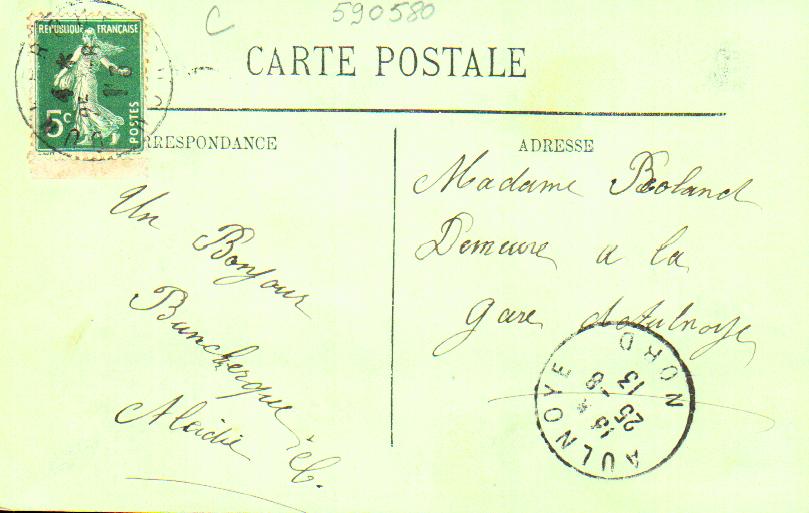 C
590580
REPUBLIQUE FRANÇAISE
5c
POSTES
CARTE POSTALE
RRESPONDANCE
Un Bonjour
Alcidie
ADRESSE
Madame
Demeure a la
Gare d'Aulnoye
AULNOYE
NORD
15 *
25 - 8
13